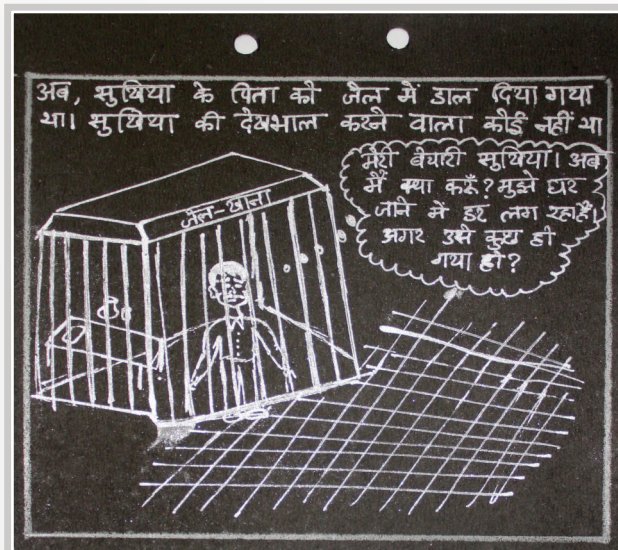 अब, सुखिया के पिता को जेल में डाल दिया गया
था। सुखिया की देखभाल करने वाला कोई नहीं था
मेरी बेचारी सुखिया। अब
मैं क्या करूँ? मुझे घर
जाने में डर लग रहा है।
अगर उसे कुछ हो
गया हो?
जेल-खाना